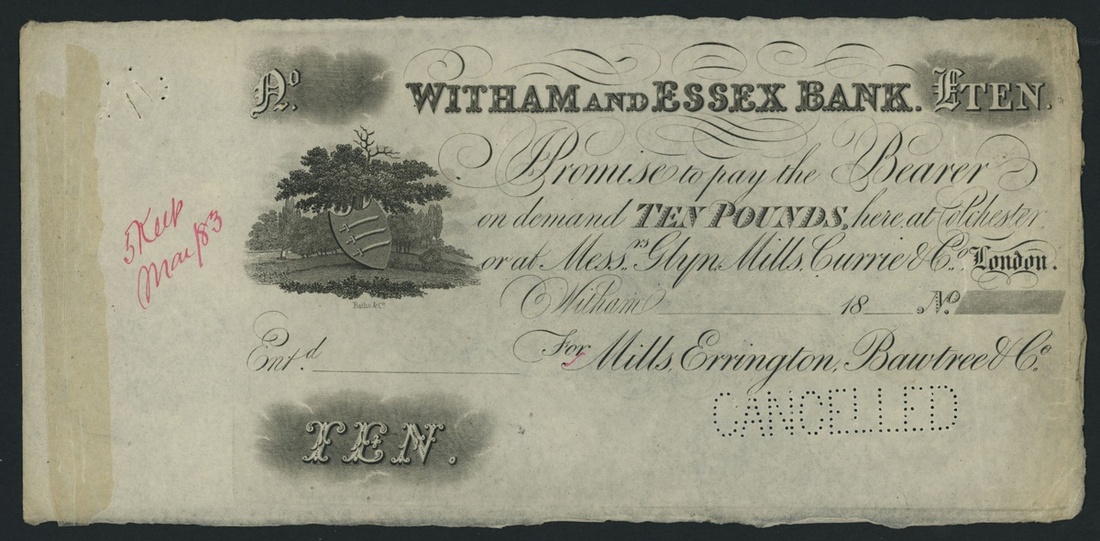 Nº
WITHAM AND ESSEX BANK. £TEN.
Promise to pay the Bearer
on demand TEN POUNDS, here, at Colchester
or at Messrs Glyn, Mills, Currie & Co. London.
Witham 18 No
Bacho & Co
Entd. For Mills, Errington, Bawtree & Co
TEN.
CANCELLED
5 Keep
Mar/83